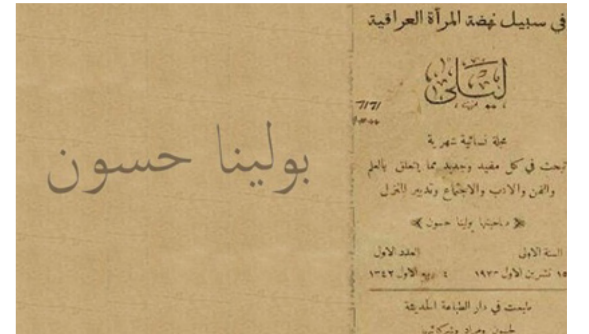 في سبيل نهضة المرآة العراقية
ليلى
مجلة نسائية شهرية
تبحث في كل مفيد وجديد مما يتعلق بالعلم
والفن والادب والاجتماع وتدبير المنزل
صاحبتها بولينا حسون
السنة الاولى العدد الاول
١٥ تشرين الاول ١٩٢٣ ٤ ربيع الاول ١٣٤٢
طبعت في دار الطباعة الحديثة
بولينا حسون